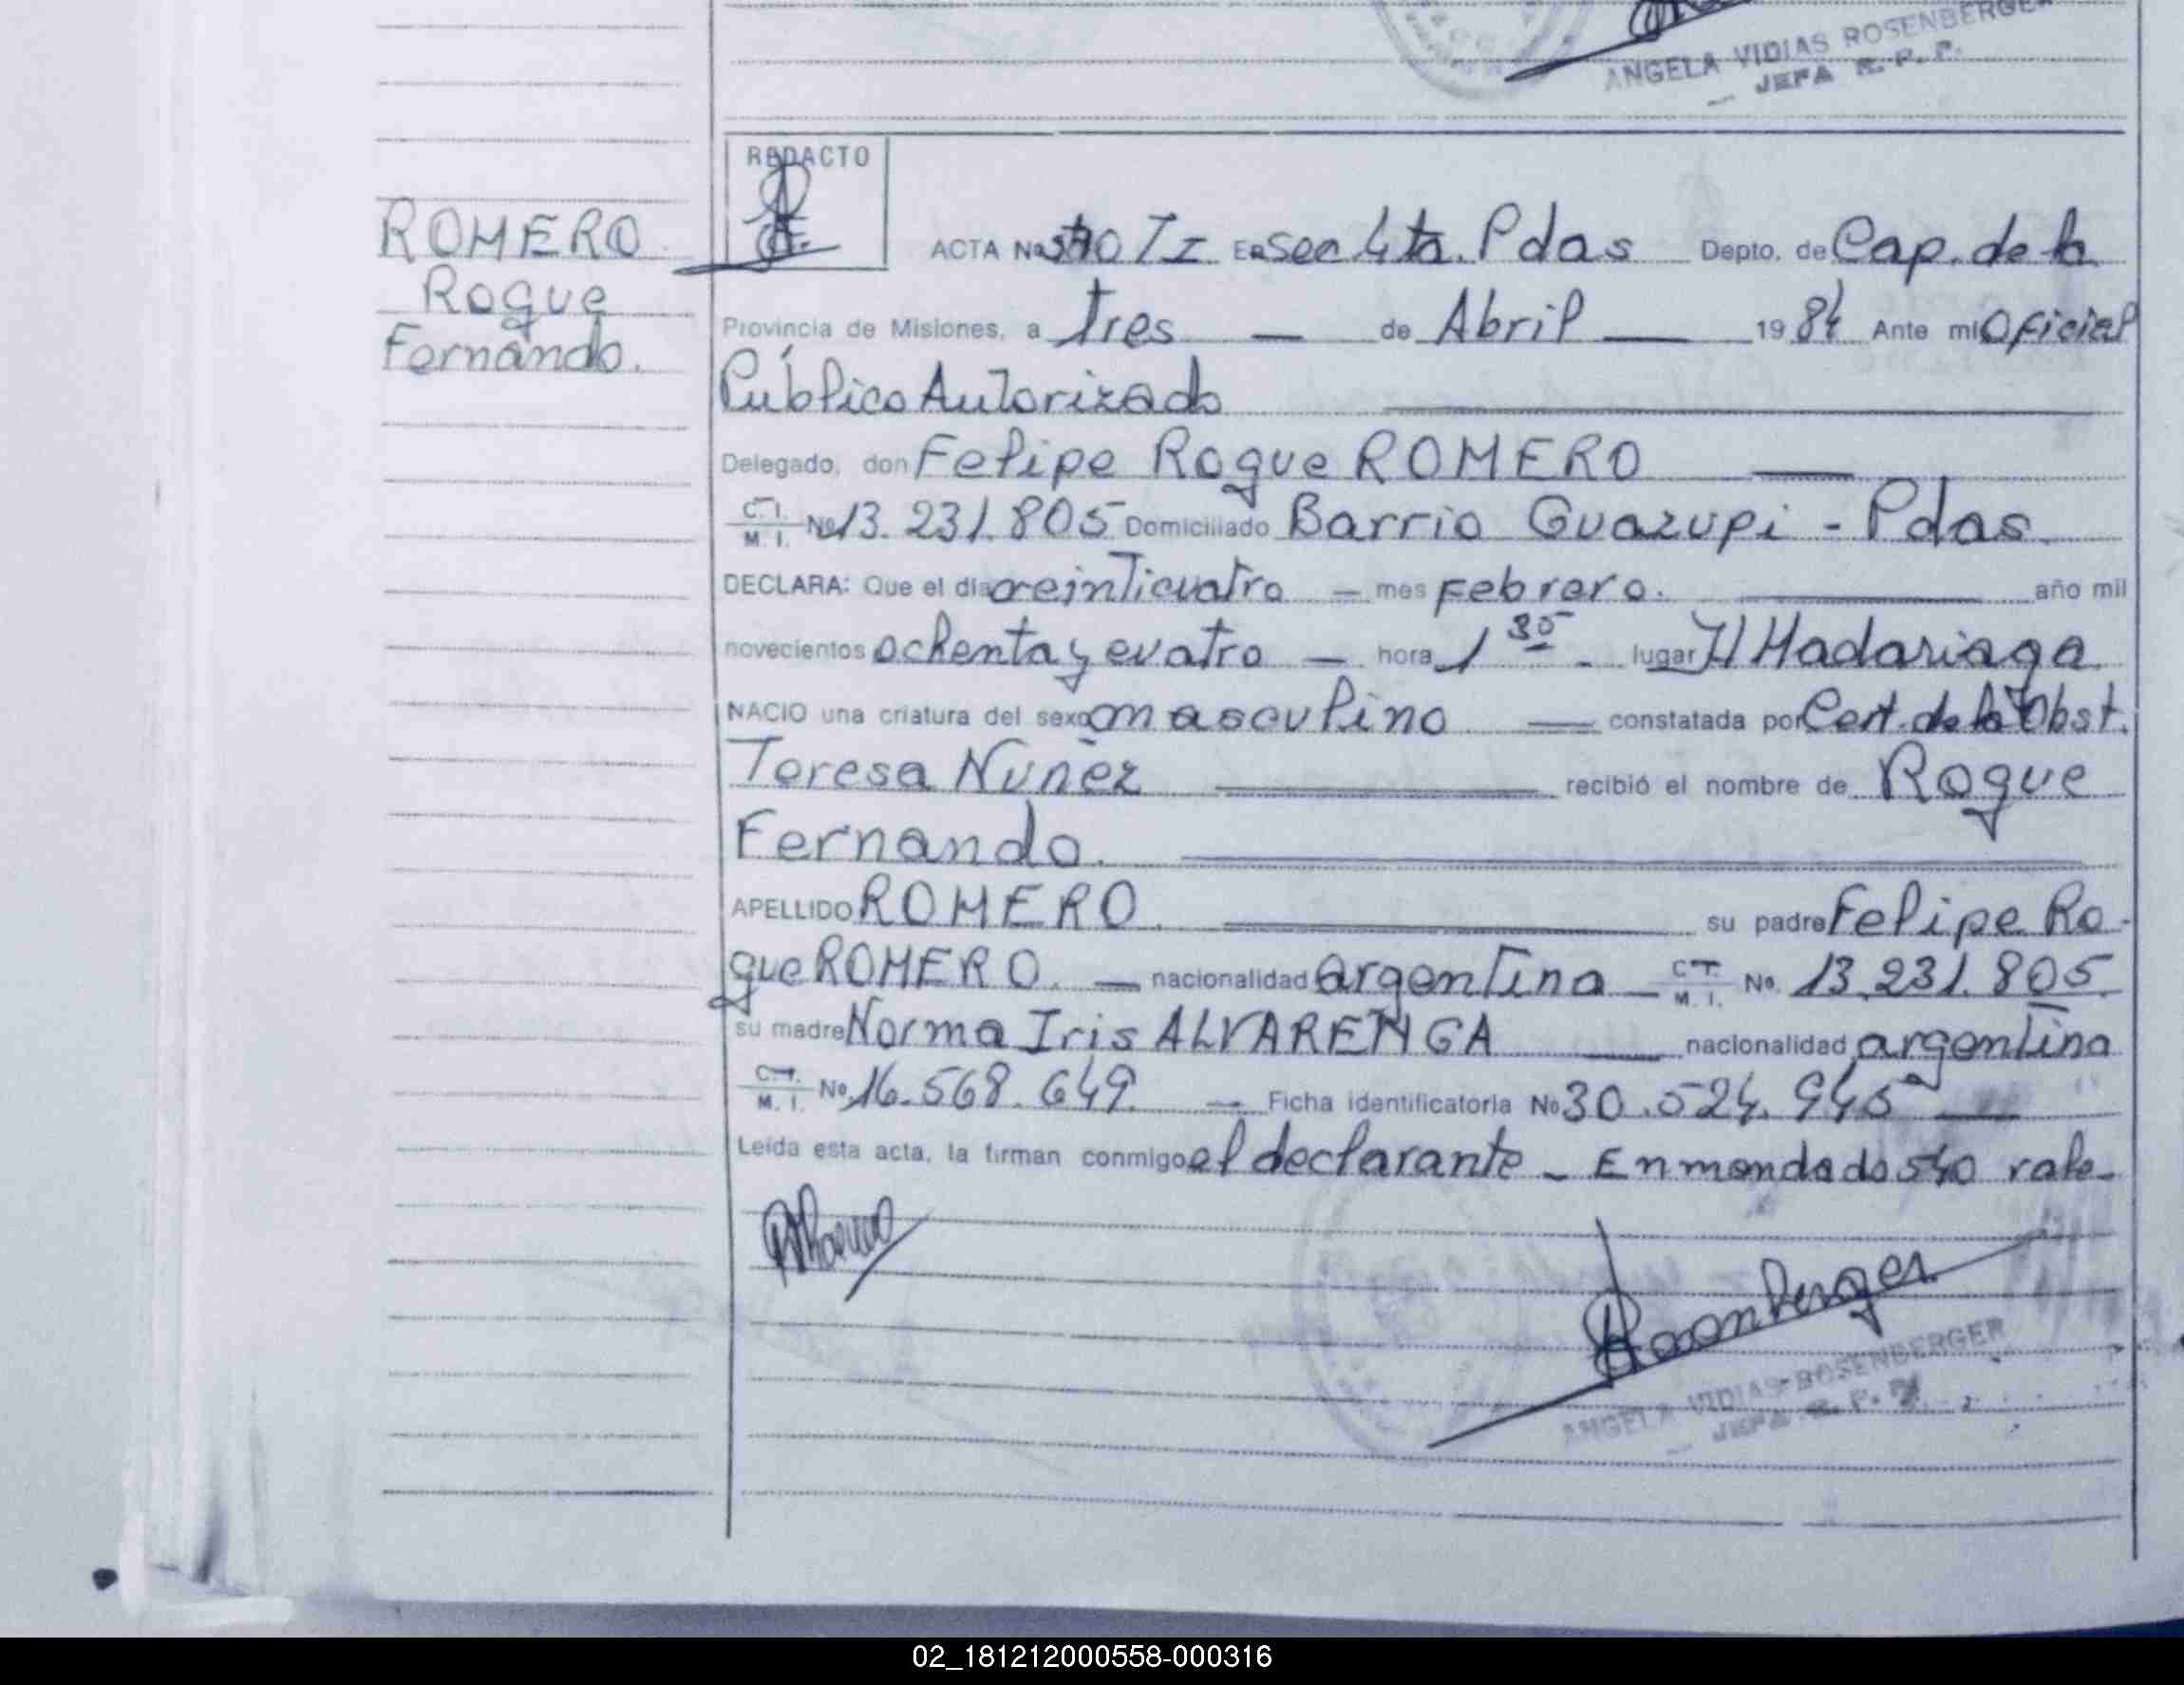 ANGELA VIDIAS ROSENBERGER
JEFA R. P. P.
REDACTO
ROMERO
Roque
Fernando.
ACTA No 540 TI En Sec 4ta. Pdas Depto. de Cap. de la
Provincia de Misiones, a Tres — de Abril — 1984 Ante mi Oficial
Público Autorizado
Delegado, don Felipe Roque ROMERO
C. I. M. I. No 13.231.805 Domiciliado Barrio Guazupi - Pdas.
DECLARA: Que el día veinticuatro — mes Febrero. año mil
novecientos ochenta y cuatro — hora 1 30 - lugar H Madariaga
NACIO una criatura del sexo masculino — constatada por Cert. de la Obst.
Teresa Nuñez recibió el nombre de Roque
Fernando.
APELLIDO ROMERO. su padre Felipe Ro-
que ROMERO. — nacionalidad argentina — C. I. M. I. No. 13.231.805
su madre Norma Iris ALVARENGA — nacionalidad argentina
C. I. M. I. No. 16.568.649. — Ficha identificatoria No 30.524.945 —
Leída esta acta, la firman conmigo el declarante - Enmendado 540 vale-
Rosenberger
ANGELA VIDIAS ROSENBERGER
JEFA R. P. P.
02_181212000558-000316